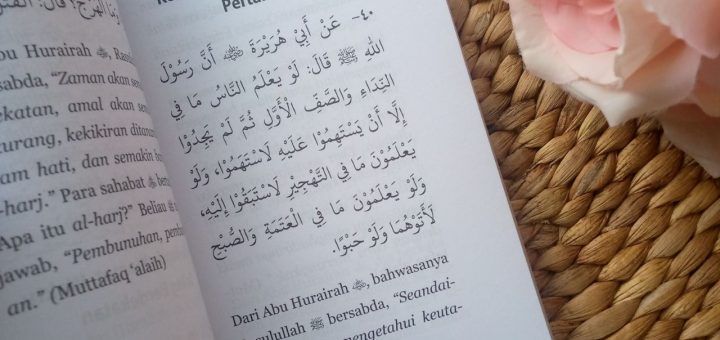 وَمَا الْهَرْجُ؟ قَالَ:
bu Hurairah ﷺ,
sabda, “Zaman akan
ekatan, amal akan
urang, kekikiran
am hati, dan semakin
-harj.” Para sahabat
Apa itu al-harj?” Beliau
jawab, “Pembunuhan,
an.” (Muttafaq ‘alaih)
٤٠- عَنْ أَبِي هُرَيْرَةَ ﷺ أَنَّ رَسُوْلَ
اللهِ ﷺ قَالَ: لَوْ يَعْلَمُ النَّاسُ مَا فِي
النِّدَاءِ وَالصَّفِّ الْأَوَّلِ ثُمَّ لَمْ يَجِدُوْا
إِلَّا أَنْ يَسْتَهِمُوْا عَلَيْهِ لَاسْتَهَمُوْا، وَلَوْ
يَعْلَمُوْنَ مَا فِي التَّهْجِيْرِ لَاسْتَبَقُوْا إِلَيْهِ،
وَلَوْ يَعْلَمُوْنَ مَا فِي الْعَتَمَةِ وَالصُّبْحِ
لَأَتَوْهُمَا وَلَوْ حَبْوًا.
Dari Abu Hurairah, bahwasanya
Rasulullah ﷺ bersabda, “Seandai-
mengetahui keuta-